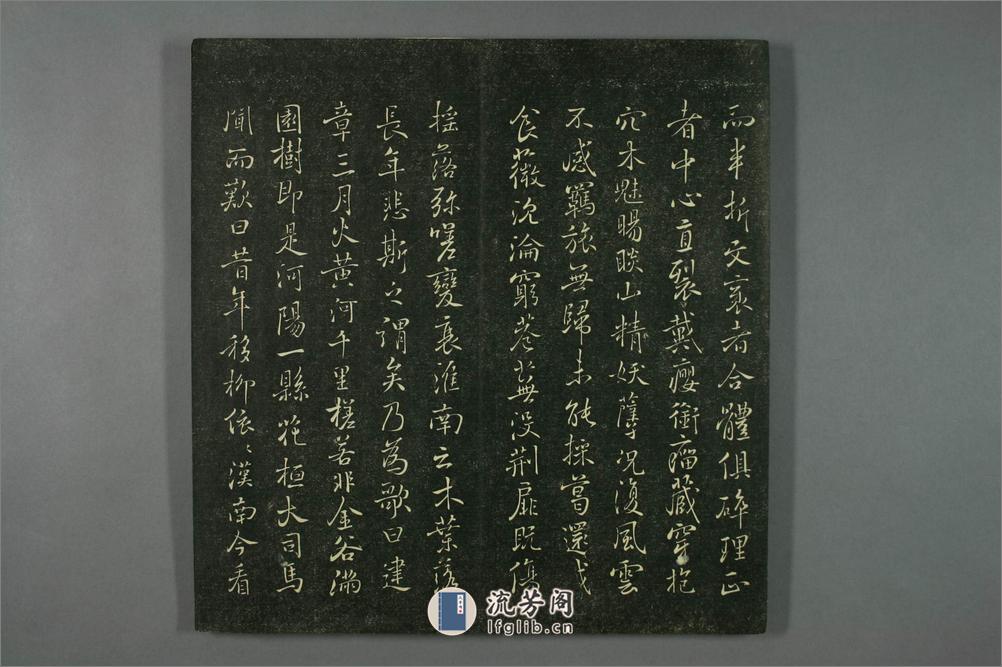 而半折文衺者合體俱碎理正
者中心直裂戴癭銜瘤藏穿抱
穴木魅睗睒山精妖孽况復風雲
不感羈旅無歸未能採葛還成
食薇沉淪窮巷蕪没荆扉既傷
搖落弥嗟變衰淮南云木葉落
長年悲斯之謂矣乃為歌曰建
章三月火黄河千里槎若非金谷滿
園樹即是河陽一縣花桓大司馬
聞而歎曰昔年移柳依〻漢南今看
流芳阁
lfglib.cn